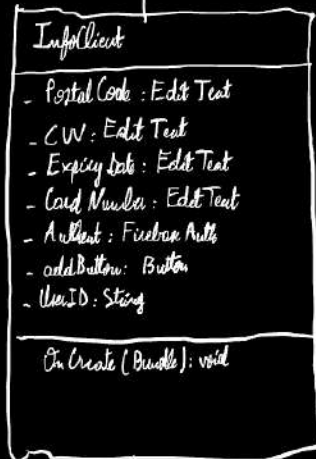 InfoClient
- Postal Code : Edit Text
- CVV : Edit Text
- Expiry Date : Edit Text
- Card Number : Edit Text
- Authent : Firebase Auth
- addButton : Button
- UserID : String
OnCreate (Bundle) : void